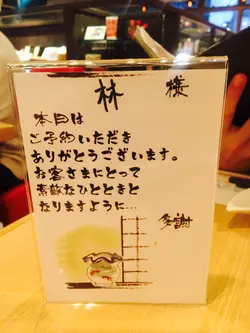 林 様
本日は
ご予約いただき
ありがとうございます。
お客さまにとって
素敵なひとときと
なりますように…
多謝